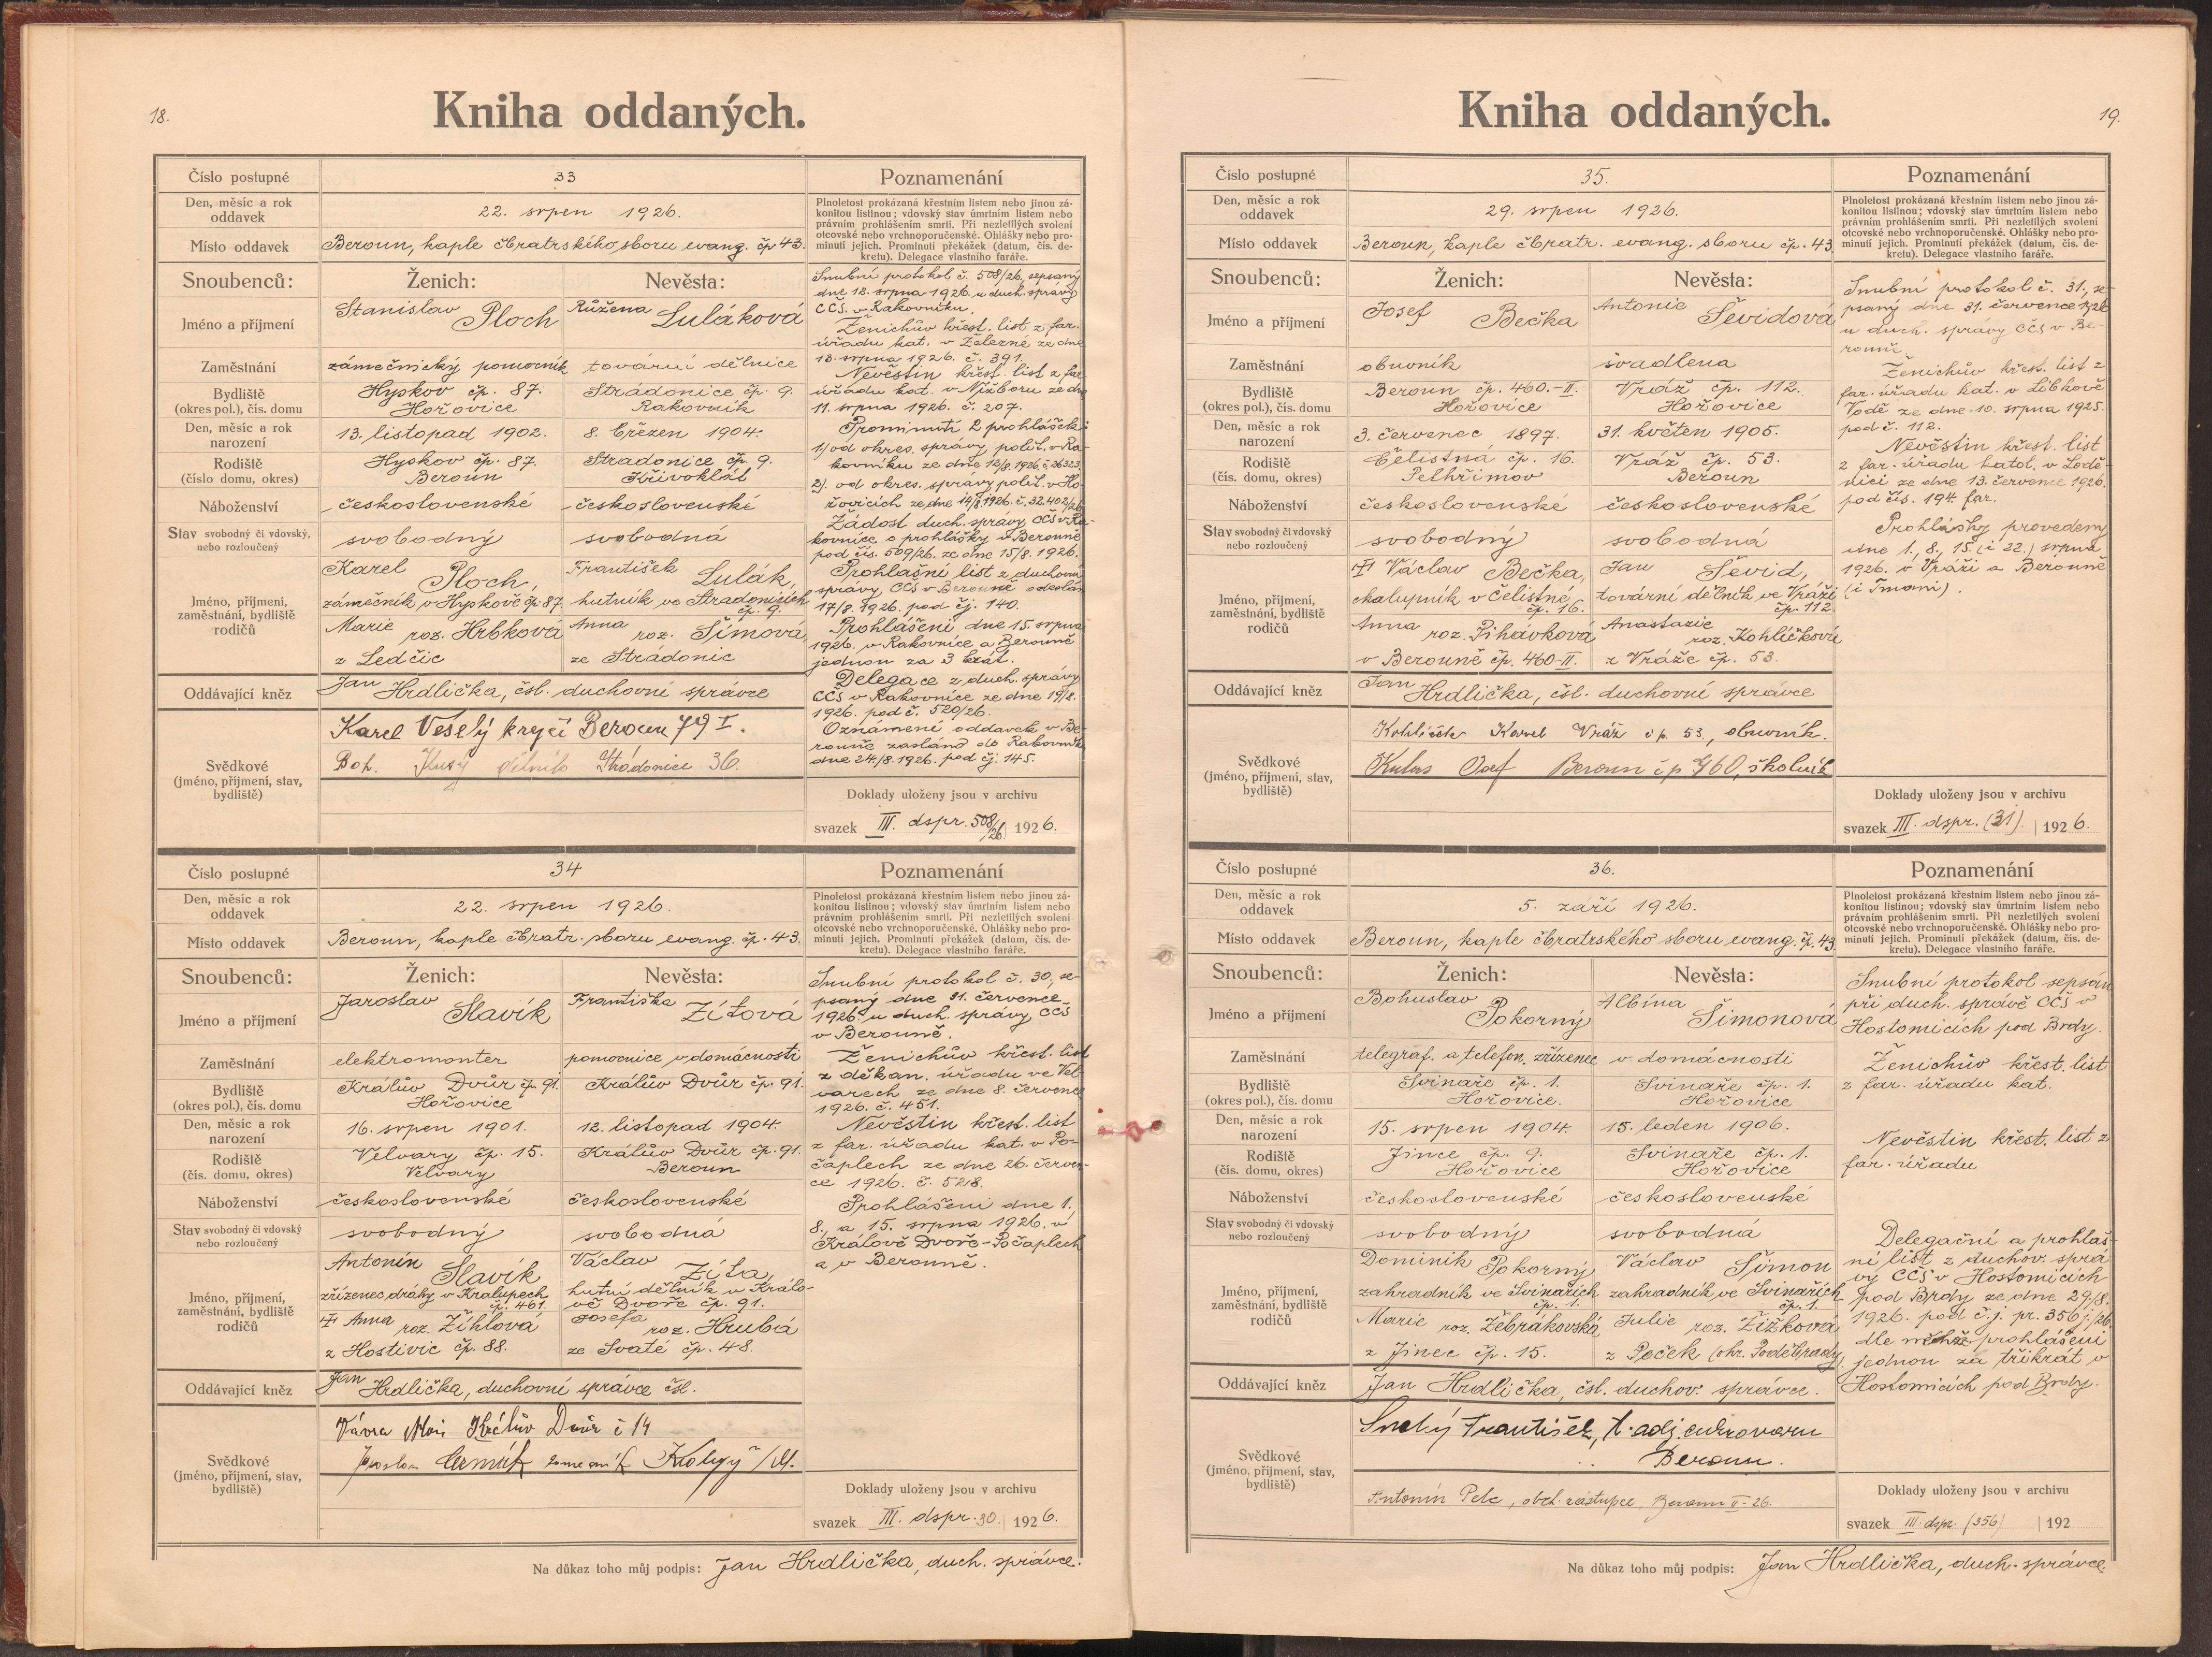 18.
Kniha oddaných.
Číslo postupné
33
Poznamenání
Den, měsíc a rok
oddavek
22. srpen 1926.
Plnoletost prokázaná křestním listem nebo jinou zá-
konitou listinou; vdovský stav úmrtním listem nebo
právním prohlášením smrti. Při nezletilých svolení
otcovské nebo vrchnoporučenské. Ohlášky nebo pro-
minutí jejich. Prominutí překážek (datum, čís. de-
kretu). Delegace vlastního faráře.
Místo oddavek
Beroun, kaple čbratrského sboru evang. čp 43.
Snoubenců:
Ženich:
Nevěsta:
Jméno a příjmení
Stanislav Ploch
Růžena Luláková
Zaměstnání
zámečnický pomocník
tovární dělnice
Bydliště
(okres pol.), čís. domu
Hyskov čp. 87.
Hořovice
Strádonice čp. 9.
Rakovník
Den, měsíc a rok
narození
13. listopad 1902.
8. březen 1904.
Rodiště
(číslo domu, okres)
Hyskov čp. 87.
Beroun
Stradonice čp. 9.
Křivoklát
Náboženství
československé
československé
Stav svobodný či vdovský,
nebo rozloučený
svobodný
svobodná
Jméno, příjmení,
zaměstnání, bydliště
rodičů
Karel Ploch,
zámečník v Hyskově čp 87.
Marie roz. Hrbková
z Ledčic
František Lulák,
hutník ve Stradonicích
čp. 9.
Anna roz. Šímová,
ze Strádonic
Oddávající kněz
Jan Hrdlička, čsl. duchovní správce
Svědkové
(jméno, příjmení, stav,
bydliště)
Karel Veselý krejčí Beroun 79 I.
Boh. Kusý dělník Strádonice 36.
Snubní protokol č. 508/26, sepsaný
dne 12. srpna 1926. u duch. správy
CČS. v Rakovníku.
Ženichův křest. list z far.
úřadu kat. v Železné ze dne
13. srpna 1926. č. 391.
Nevěstin křest. list z far.
úřadu kat. v Nižboru ze dne
11. srpna 1926. č. 207.
Prominutí 2 prohlášek:
1) od okres. správy polit. v Ra-
kovníku ze dne 12/8. 1926. č. 26323.
2). od okres. správy polit. v Ho-
řovicích ze dne 14/8. 1926. č. 32.402/26.
Žádost duch. správy CČS v Ra-
kovníce o prohlášky v Berouně
pod čís. 509/26. ze dne 15/8. 1926.
Prohlašní list z duchovní
správy CČS v Berouně odeslán
17/8. 1926. pod čj. 140.
Prohlášeni dne 15. srpna
1926. v Rakovníce a Berouně
jednou za 3 krát.
Delegace z duch. správy
CČS v Rakovníce ze dne 19/8.
1926. pod č. 520/26.
Oznámení oddavek v Be-
rouně zasláno do Rakovníka
dne 24/8. 1926. pod čj. 145.
Doklady uloženy jsou v archivu
svazek III. dspr. 508/26. 1926.
Číslo postupné
34
Poznamenání
Den, měsíc a rok
oddavek
22. srpen 1926.
Plnoletost prokázaná křestním listem nebo jinou zá-
konitou listinou; vdovský stav úmrtním listem nebo
právním prohlášením smrti. Při nezletilých svolení
otcovské nebo vrchnoporučenské. Ohlášky nebo pro-
minutí jejich. Prominutí překážek (datum, čís. de-
kretu). Delegace vlastního faráře.
Místo oddavek
Beroun, kaple čbratr. sboru evang. čp. 43.
Snoubenců:
Ženich:
Nevěsta:
Jméno a příjmení
Jaroslav Slavík
Františka Zítová
Zaměstnání
elektromonter
pomocnice v domácnosti
Bydliště
(okres pol.), čís. domu
Králův Dvůr čp. 91.
Hořovice
Králův Dvůr čp. 91.
Den, měsíc a rok
narození
16. srpen 1901.
12. listopad 1904.
Rodiště
(čís. domu, okres)
Velvary čp. 15.
Velvary
Králův Dvůr čp. 91.
Beroun
Náboženství
československé
československé
Stav svobodný či vdovský
nebo rozloučený
svobodný
svobodná
Jméno, příjmení,
zaměstnání, bydliště
rodičů
Antonín Slavík
zřízenec dráhy v Kralupech
čp. 461.
Anna roz. Žihlová
z Hostivic čp. 88.
Václav Zíta,
hutní dělník v Králo-
vě Dvoře čp. 91.
Josefa roz. Hrubá
ze Svaté čp. 48.
Oddávající kněz
Jan Hrdlička, duchovní správce čsl.
Svědkové
(jméno, příjmení, stav,
bydliště)
Vávra Králův Dvůr č 14
Jaroslav Čermák
Snubní protokol č. 30, se-
psaný dne 31. července
1926. u duch. správy CČS
v Berouně.
Ženichův křest. list
z děkan. úřadu ve Vel-
varech ze dne 8. července
1926. č. 451.
Nevěstin křest. list
z far. úřadu kat. v Po-
čaplech ze dne 26. červen-
ce 1926. č. 528.
Prohlášeni dne 1.
8., a 15. srpna 1926. v
Králově Dvoře-Počaplech
a v Berouně.
Doklady uloženy jsou v archivu
svazek III. dspr. 30. 1926.
Na důkaz toho můj podpis: Jan Hrdlička, duch. správce.
19.
Kniha oddaných.
Číslo postupné
35.
Poznamenání
Den, měsíc a rok
oddavek
29. srpen 1926.
Plnoletost prokázaná křestním listem nebo jinou zá-
konitou listinou; vdovský stav úmrtním listem nebo
právním prohlášením smrti. Při nezletilých svolení
otcovské nebo vrchnoporučenské. Ohlášky nebo pro-
minutí jejich. Prominutí překážek (datum, čís. de-
kretu). Delegace vlastního faráře.
Místo oddavek
Beroun, kaple čbratr. evang. sboru čp. 43
Snoubenců:
Ženich:
Nevěsta:
Jméno a příjmení
Josef Bečka
Antonie Ševidová
Zaměstnání
obuvník
švadlena
Bydliště
(okres pol.), čís. domu
Beroun čp. 460.-II.
Hořovice
Vráž čp. 112.
Hořovice
Den, měsíc a rok
narození
3. červenec 1897.
31. květen 1905.
Rodiště
(čís. domu, okres)
Čelistná čp. 16.
Pelhřimov
Vráž čp. 53.
Beroun
Náboženství
československé
československé
Stav svobodný či vdovský
nebo rozloučený
svobodný
svobodná
Jméno, příjmení,
zaměstnání, bydliště
rodičů
Václav Bečka,
chalupník v Čelistné
čp. 16.
Anna roz. Pihávková
v Berouně čp. 460-II.
Jan Ševid,
tovární dělník ve Vráži
čp. 112.
Anastazie roz. Kohlíčková
z Vráže čp. 53.
Oddávající kněz
Jan Hrdlička, čsl. duchovní správce
Svědkové
(jméno, příjmení, stav,
bydliště)
Kohlíček Karel Vráž čp. 53., obuvník.
Josef Beroun čp 460, školník
Snubní protokol č. 31., se-
psaný dne 31. července 1926
u duch. správy CČS v Be-
rouně.
Ženichův křest. list z
far. úřadu kat. v Libkově
Vodě ze dne 10. srpna 1925.
pod č. 112.
Nevěstin křest. list
z far. úřadu katol. v Lodě-
nici ze dne 13. července 1926.
pod čís. 194. far.
Prohlášky provedeny
dne 1., 8., 15. (i 22.) srpna
1926. v Vráži a Berouně
(i Tmani).
Doklady uloženy jsou v archivu
svazek III. dspr. (31). 1926.
Číslo postupné
36.
Poznamenání
Den, měsíc a rok
oddavek
5. září 1926.
Plnoletost prokázaná křestním listem nebo jinou zá-
konitou listinou; vdovský stav úmrtním listem nebo
právním prohlášením smrti. Při nezletilých svolení
otcovské nebo vrchnoporučenské. Ohlášky nebo pro-
minutí jejich. Prominutí překážek (datum, čís. de-
kretu). Delegace vlastního faráře.
Místo oddavek
Beroun, kaple čbratrského sboru evang. čp. 43.
Snoubenců:
Ženich:
Nevěsta:
Jméno a příjmení
Bohuslav Pokorný
Albína Šimonová
Zaměstnání
telegraf. a telefon. zřízenec
v domácnosti
Bydliště
(okres pol.), čís. domu
Svinaře čp. 1.
Hořovice.
Svinaře čp. 1.
Hořovice
Den, měsíc a rok
narození
15. srpen 1904.
15. leden 1906.
Rodiště
(čís. domu, okres)
Jince čp. 9.
Hořovice
Svinaře čp. 1.
Hořovice
Náboženství
československé
československé
Stav svobodný či vdovský
nebo rozloučený
svobodný
svobodná
Jméno, příjmení,
zaměstnání, bydliště
rodičů
Dominik Pokorný
zahradník ve Svinařích
čp. 1.
Marie roz. Žebrákovská
z Jinec čp. 15.
Václav Šimon
zahradník ve Svinařích
čp. 1.
Julie roz. Žižková
z Peček (okr. Poděbrady)
Oddávající kněz
Jan Hrdlička, čsl. duchov. správce.
Svědkové
(jméno, příjmení, stav,
bydliště)
František, t. adj. cukrovaru
Beroun.
Antonín Pelc, obch. zástupce, Beroun II-26.
Snubní protokol sepsán
při duch. správě CČS v
Hostomicích pod Brdy.
Ženichův křest. list
z far. úřadu kat.
Nevěstin křest. list z
far. úřadu
Delegační a prohláš-
ní list z duchov. sprá-
vy CČS v Hostomicích
pod Brdy ze dne 29/8.
1926. pod č.j. pr. 356 j./26
dle něhož prohlášeni
jednou za třikrát v
Hostomicích pod Brdy.
Doklady uloženy jsou v archivu
svazek III. dspr. (356) 192
Na důkaz toho můj podpis: Jan Hrdlička, duch. správce.